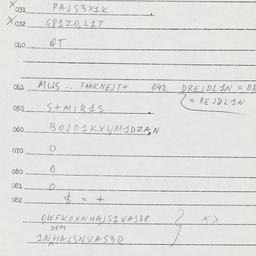 X 031 PAJS3X1K
X 032 G81Z0,L1T
040 QT
041 MUS.. F 042 DREJDL1N = DR
= REJDL1N
050 S+MIR1S
060 BOJD1KVYM1DZAN
070 0
080 0
081 0
082 $ = +
OWFKOXNHAJS1VAS3R XX
DEM
1N,HAJSNVAS3R